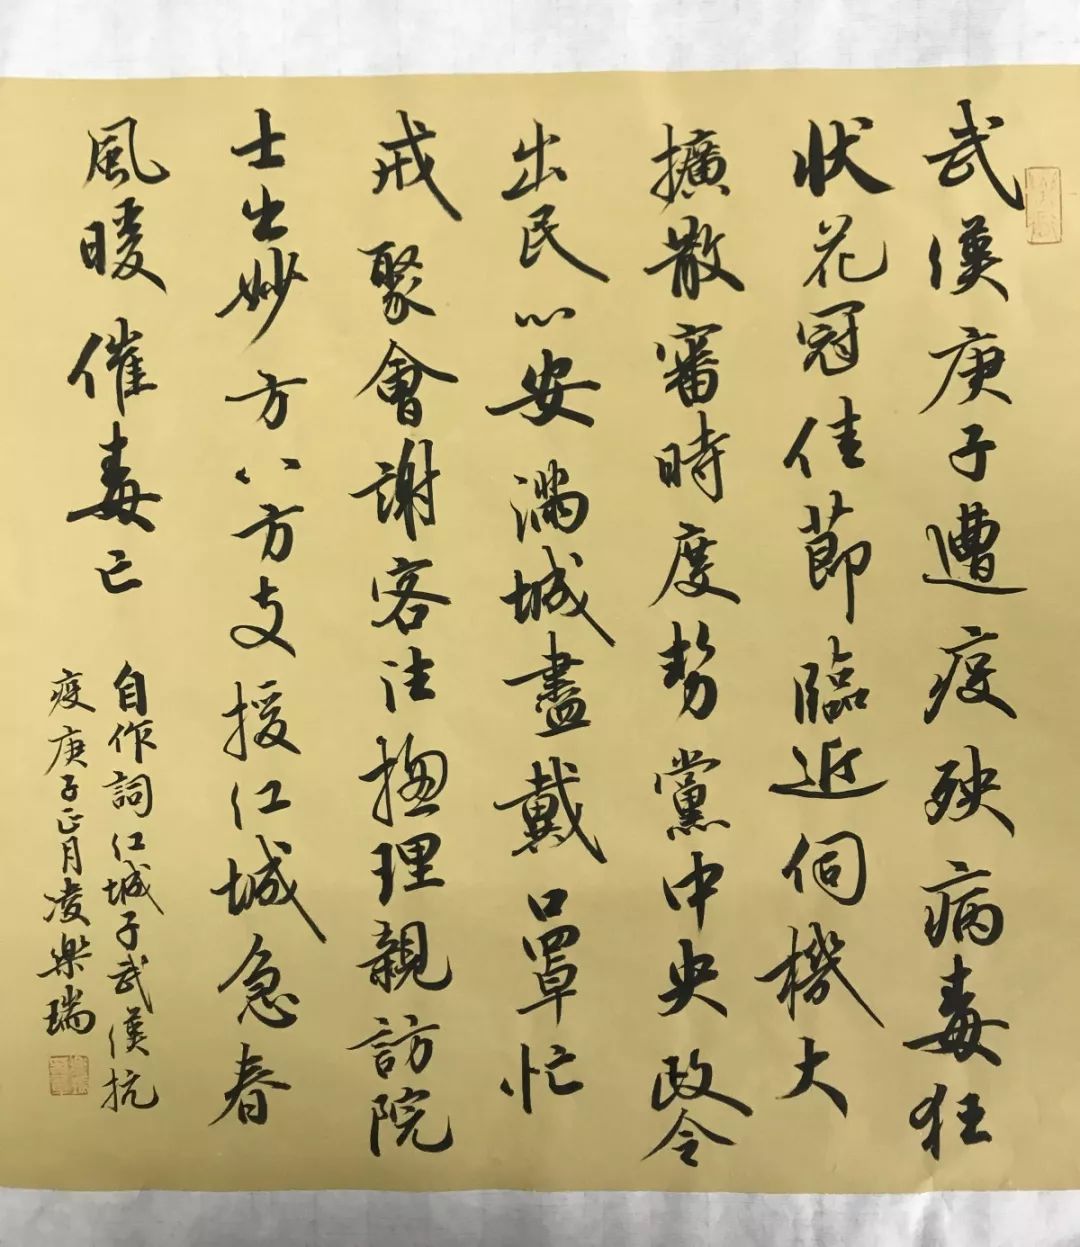 武漢庚子遭疫殃病毒狂
狀花冠佳節臨近伺機大
擴散審時度勢黨中央政令
出民心安滿城盡戴口罩忙
戒聚會謝客往揔理親訪院
士出妙方八方支援江城急春
風暖催毒亡
自作詞江城子武漢抗
疫庚子正月凌樂瑞